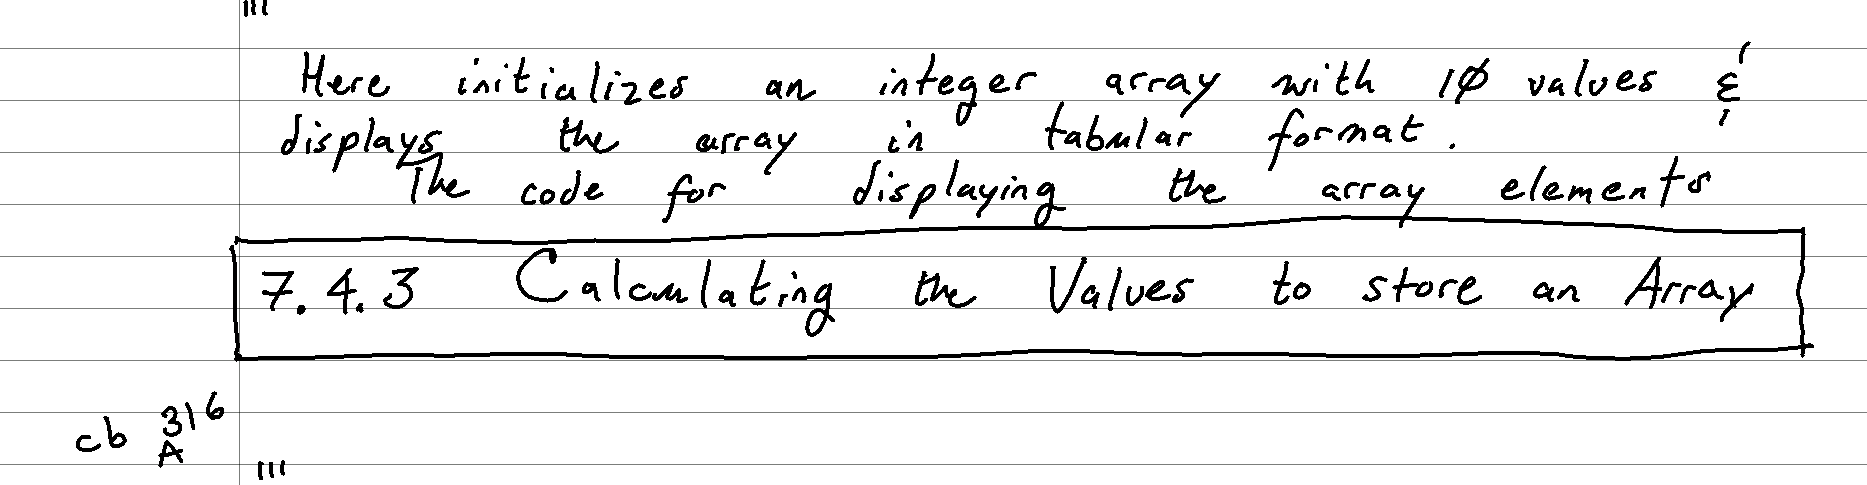 "'
Here initializes an integer array with 1Ø values &
displays the array in tabular format.
The code for displaying the array elements
7.4.3 Calculating the Values to store an Array
cb A 316
"'